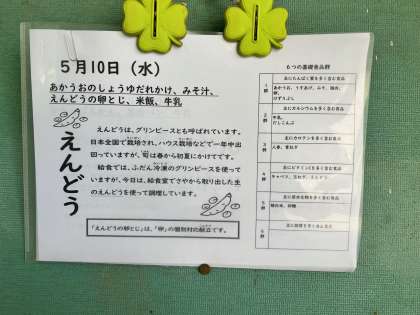 5月10日（水）
あかうおのしょうゆだれかけ、みそ汁、
えんどうの卵とじ、米飯、牛乳
えんどう
えんどうは、グリンピースとも呼ばれています。
日本全国で栽培され、ハウス栽培などで一年中出
回っていますが、旬は春から初夏にかけてです。
給食では、ふだん冷凍のグリンピースを使って
いますが、今日は、給食室でさやから取り出した生
のえんどうを使って調理しています。
「えんどうの卵とじ」は、「卵」の個別対応献立です。
6つの基礎食品群
1群
主にたんぱく質を多く含む食品
あかうお、うすあげ、みそ、鶏肉、
卵、
2群
主にカルシウムを多く含む食品
牛乳、
だしこんぶ
3群
主にカロテンを多く含む食品
人参、青ねぎ
4群
主にビタミンCを多く含む食品
キャベツ、玉ねぎ、えんどう
5群
主に炭水化物を多く含む食品
精白米、砂糖
6群
主に脂質を多く含む食品